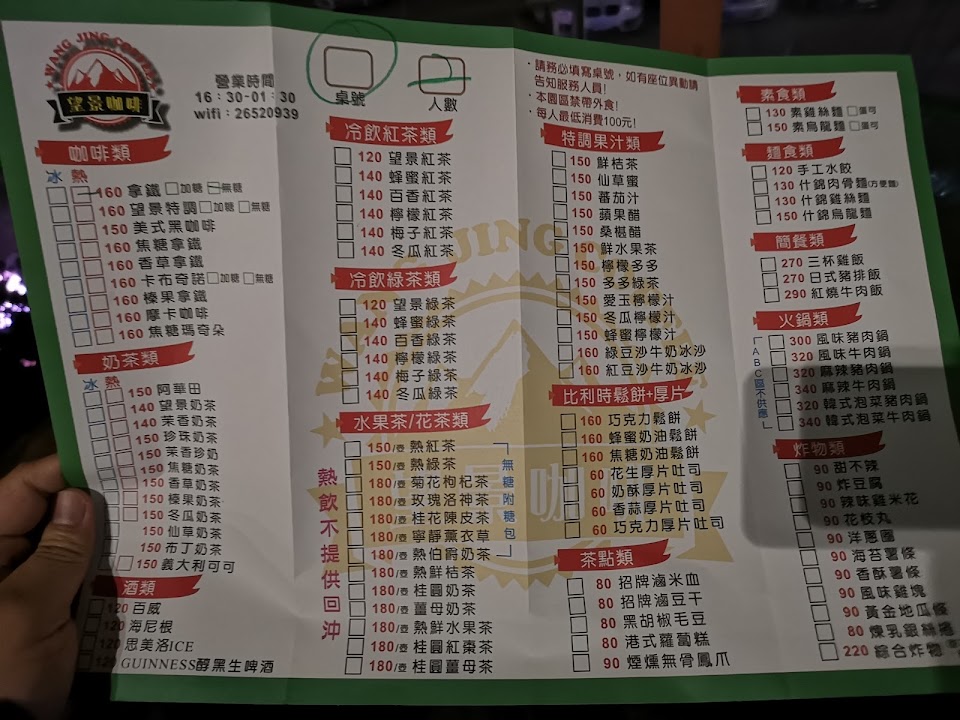 WANG JING COFFEE
望景咖啡
營業時間
16：30-01：30
wifi：26520939
桌號
人數
·請務必填寫桌號，如有座位異動請
告知服務人員!
·本園區禁帶外食!
·每人最低消費100元!
咖啡類
冰 熱
160 拿鐵 加糖 無糖
160 望景特調 加糖 無糖
150 美式黑咖啡
160 焦糖拿鐵
160 香草拿鐵
160 卡布奇諾 加糖 無糖
160 榛果拿鐵
160 摩卡咖啡
160 焦糖瑪奇朵
奶茶類
冰 熱
150 阿華田
140 望景奶茶
140 茉香奶茶
150 珍珠奶茶
150 茉香珍奶
150 焦糖奶茶
150 香草奶茶
150 榛果奶茶
150 冬瓜奶茶
150 仙草奶茶
150 布丁奶茶
150 義大利可可
酒類
120 百威
120 海尼根
120 思美洛ICE
120 GUINNESS醇黑生啤酒
冷飲紅茶類
120 望景紅茶
140 蜂蜜紅茶
140 百香紅茶
140 檸檬紅茶
140 梅子紅茶
140 冬瓜紅茶
冷飲綠茶類
120 望景綠茶
140 蜂蜜綠茶
140 百香綠茶
140 檸檬綠茶
140 梅子綠茶
140 冬瓜綠茶
水果茶/花茶類
熱飲不提供回沖
150/壺 熱紅茶
150/壺 熱綠茶
180/壺 菊花枸杞茶
180/壺 玫瑰洛神茶
180/壺 桂花陳皮茶
180/壺 寧靜薰衣草
180/壺 熱伯爵奶茶
無糖附糖包
180/壺 熱鮮桔茶
180/壺 桂圓奶茶
180/壺 薑母奶茶
180/壺 熱鮮水果茶
180/壺 桂圓紅棗茶
180/壺 桂圓薑母茶
特調果汁類
150 鮮桔茶
150 仙草蜜
150 蕃茄汁
150 蘋果醋
150 桑椹醋
150 鮮水果茶
150 檸檬多多
150 多多綠茶
150 愛玉檸檬汁
150 冬瓜檸檬汁
150 蜂蜜檸檬汁
160 綠豆沙牛奶冰沙
160 紅豆沙牛奶冰沙
比利時鬆餅+厚片
160 巧克力鬆餅
160 蜂蜜奶油鬆餅
160 焦糖奶油鬆餅
60 花生厚片吐司
60 奶酥厚片吐司
60 香蒜厚片吐司
60 巧克力厚片吐司
茶點類
80 招牌滷米血
80 招牌滷豆干
80 黑胡椒毛豆
80 港式蘿蔔糕
90 煙燻無骨鳳爪
素食類
130 素雞絲麵 蛋可
150 素烏龍麵 蛋可
麵食類
120 手工水餃
130 什錦肉骨麵(方便麵)
130 什錦雞絲麵
150 什錦烏龍麵
簡餐類
270 三杯雞飯
270 日式豬排飯
290 紅燒牛肉飯
火鍋類
ABC區不供應
300 風味豬肉鍋
320 風味牛肉鍋
320 麻辣豬肉鍋
340 麻辣牛肉鍋
320 韓式泡菜豬肉鍋
340 韓式泡菜牛肉鍋
炸物類
90 甜不辣
90 炸豆腐
90 辣味雞米花
90 花枝丸
90 洋蔥圈
90 海苔薯條
90 香酥薯條
90 風味雞塊
90 黃金地瓜條
80 煉乳銀絲捲
220 綜合炸物